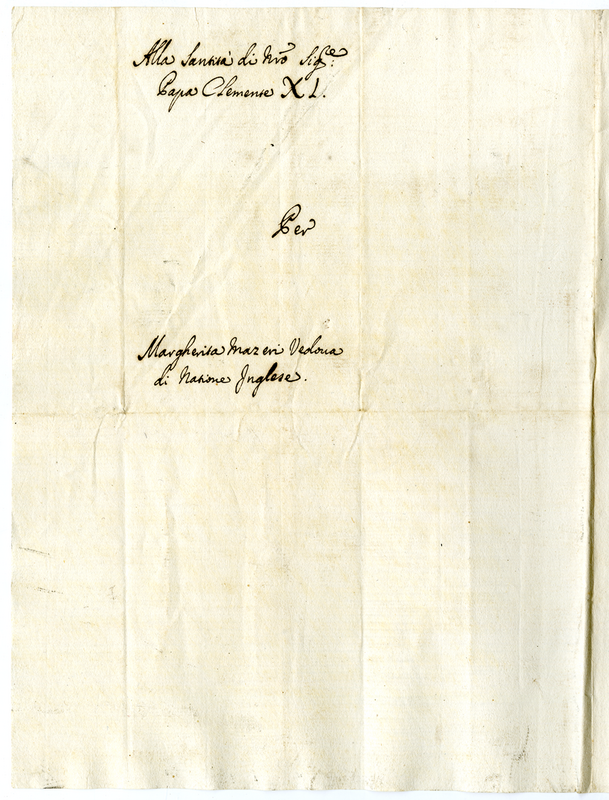 Alla Santità di Nrõ Sigre:
Papa Clemente XI.
Per
Margherita Mazeri Vedoua
di Natione Jnglese.